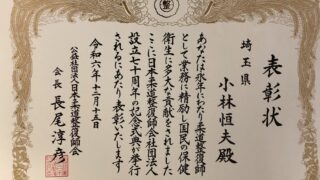 表彰状
埼玉県
小林恒夫殿
あなたは永年にわたり柔道整復師
として業務に精励し国民の保健
衛生に多大な貢献をされました
ここに日本柔道整復師会社団法人
設立七十周年の記念式典が挙行
されるにあたり表彰いたします
令和六年十二月十五日
公益社団法人日本柔道整復師会
会長 長尾淳彦